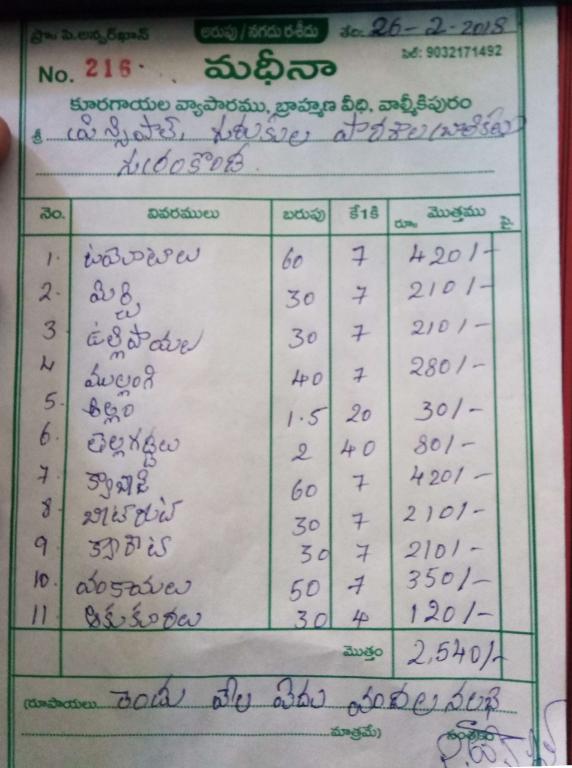 ప్రొ॥ పి.అన్వర్‌ఖాన్ అరువు / నగదు రశీదు తేది. 26-2-2018
సెల్: 9032171492
No. 216 మధీనా
కూరగాయల వ్యాపారము, బ్రాహ్మణ వీధి, వాల్మీకిపురం
శ్రీ ప్రిన్సిపాల్, గురుకుల పాఠశాల (బాలికలు)
గుర్రంకొండ.
నెం. వివరములు బరువు కే1కి రూ. మొత్తము పై.
1. టమోటాలు 60 7 420/-
2. మిర్చి 30 7 210/-
3 ఉల్లిపాయలు 30 7 210/-
4 ముల్లంగి 40 7 280/-
5. అల్లం 1.5 20 30/-
6. తెల్లగడ్డలు 2 40 80/-
7. క్యాబేజి 60 7 420/-
8 బీటారుట్ 30 7 210/-
9 క్యారెట్ 30 7 210/-
10. వంకాయలు 50 7 350/-
11 ఆకుకూరలు 30 4 120/-
మొత్తం 2,540/-
(రూపాయలు రెండు వేల ఐదు వందల నలభై
మాత్రమే) సంతకం